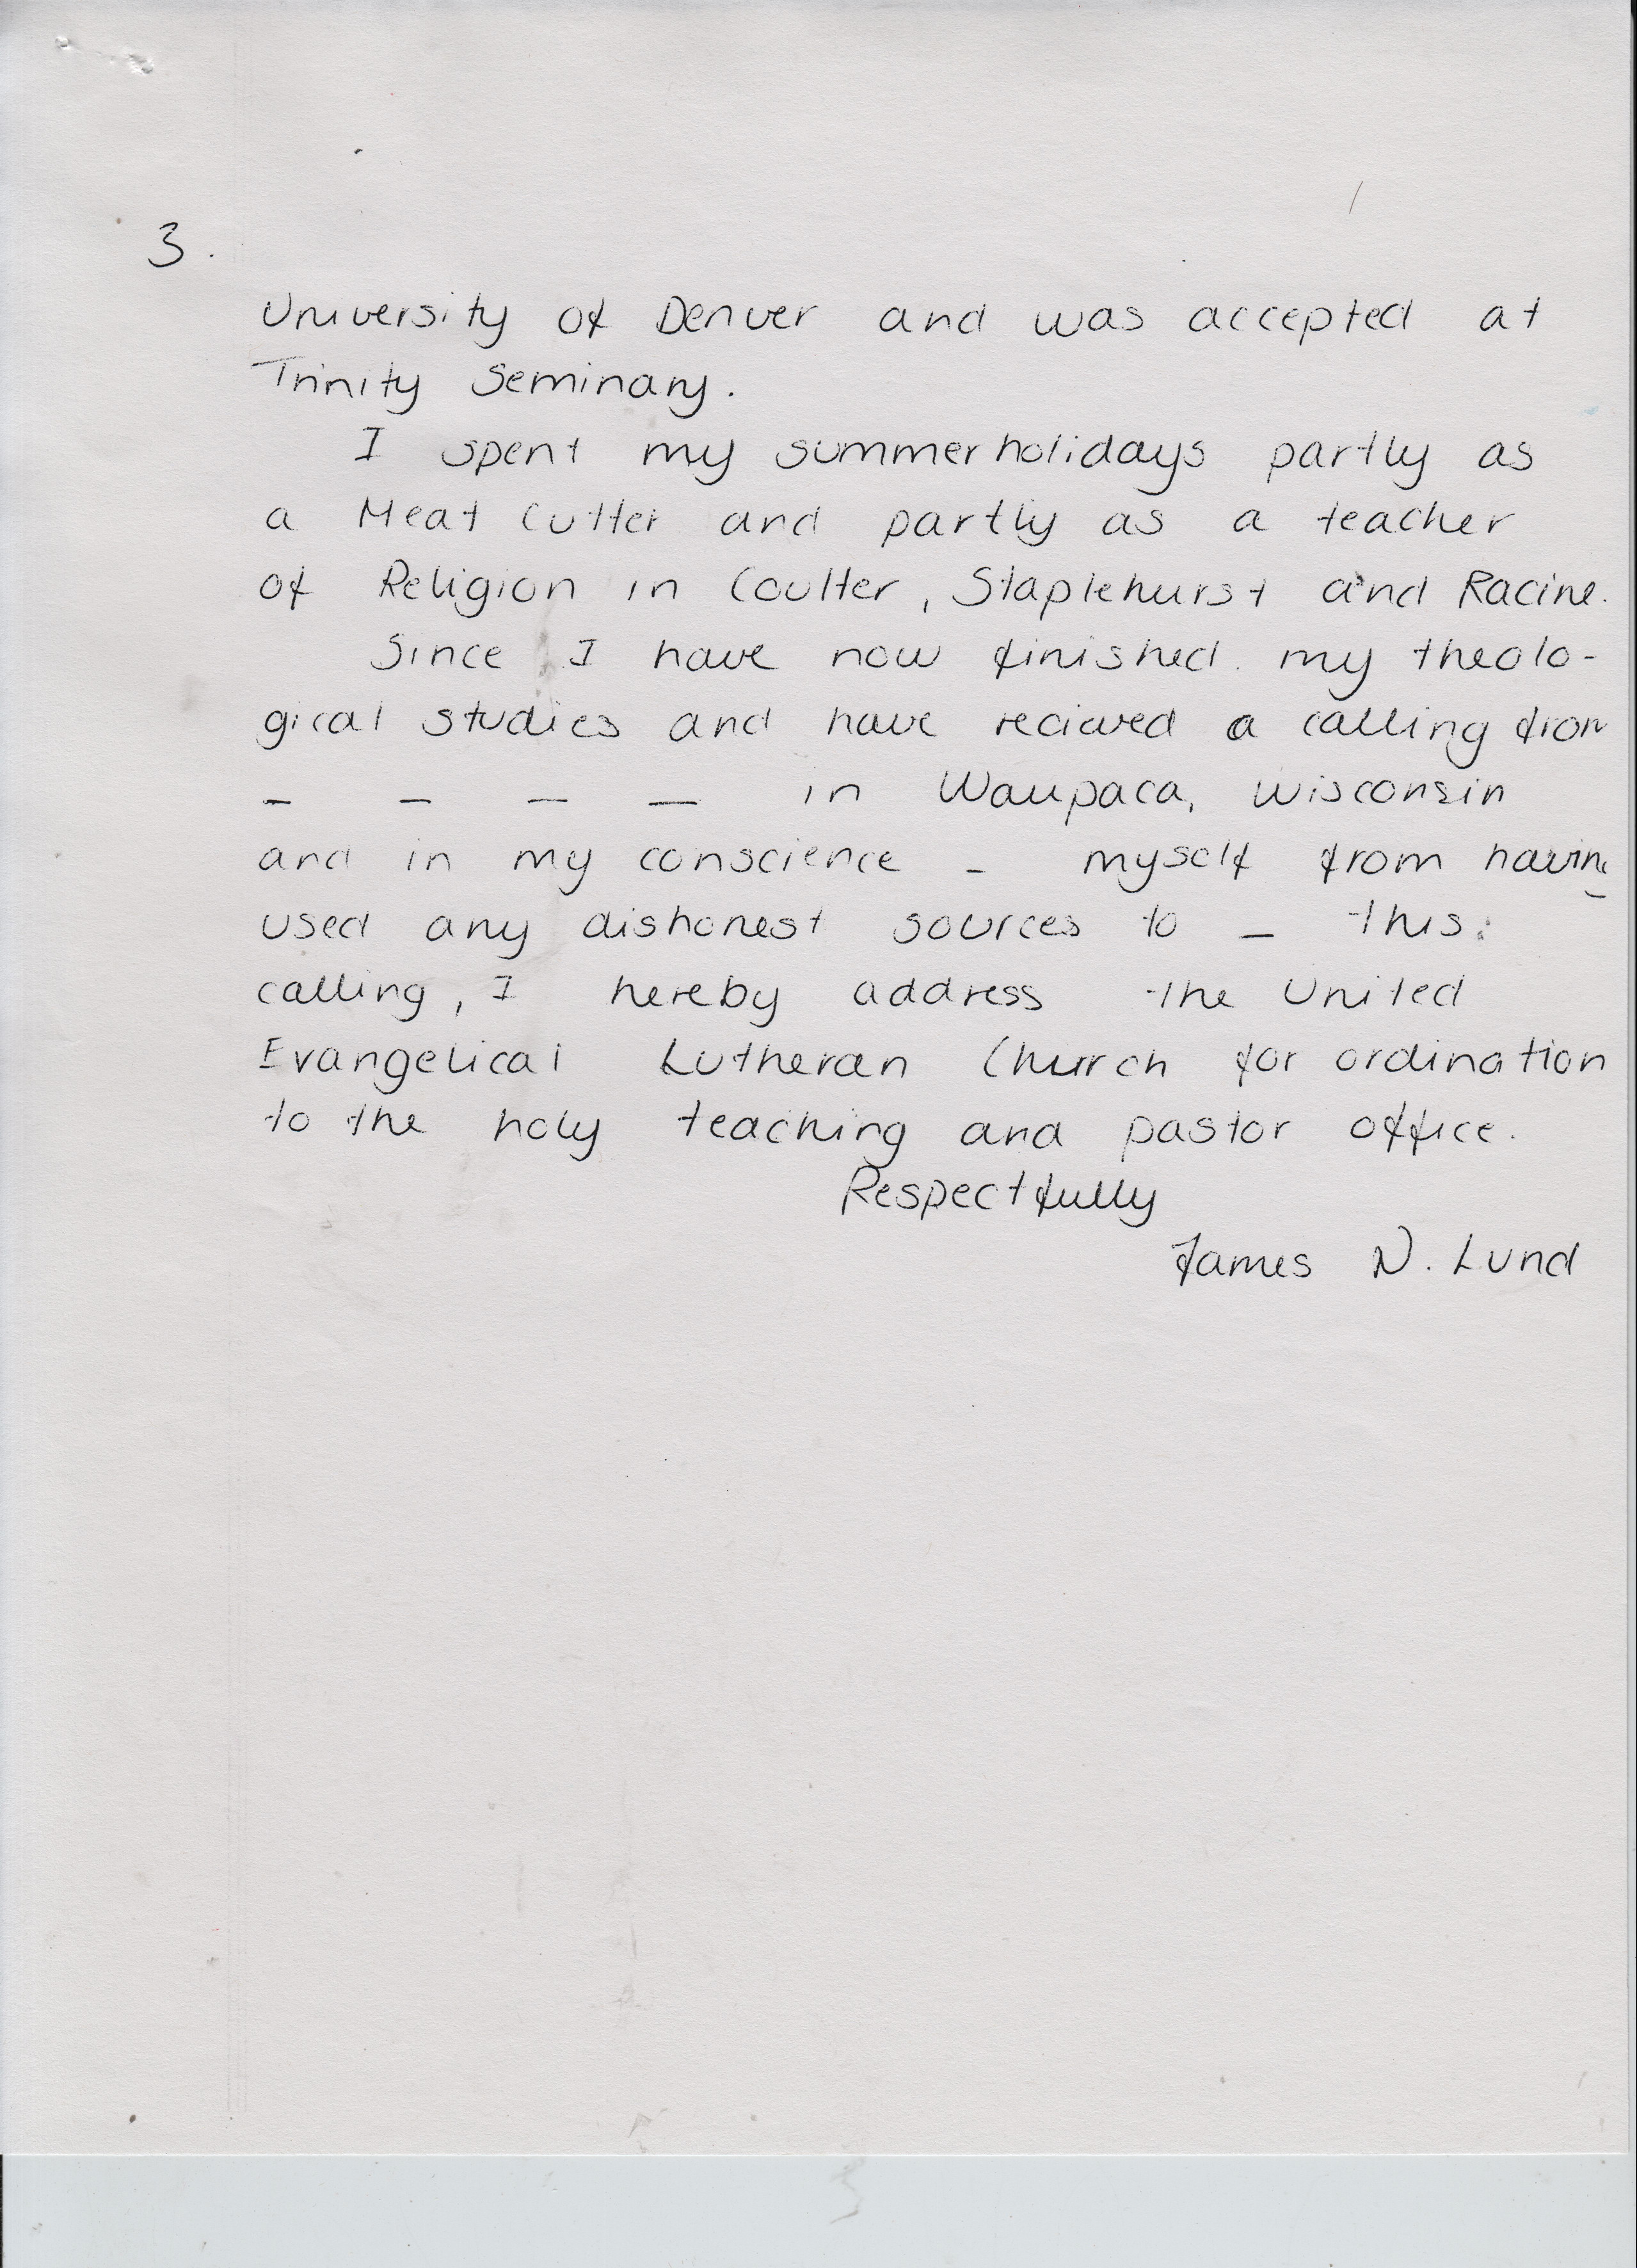 3.
University of Denver and was accepted at
Trinity Seminary.
I spent my summerholidays partly as
a Meat Cutter and partly as a teacher
of Religion in Coulter, Staplehurst and Racine.
Since I have now finished my theolo-
gical studies and have recieved a calling from
— — — — in Waupaca, Wisconsin
and in my conscience — myself from having
used any dishonest sources to — this
calling, I hereby address the United
Evangelical Lutheran Church for ordination
to the holy teaching and pastor office.
Respectfully
James N. Lund